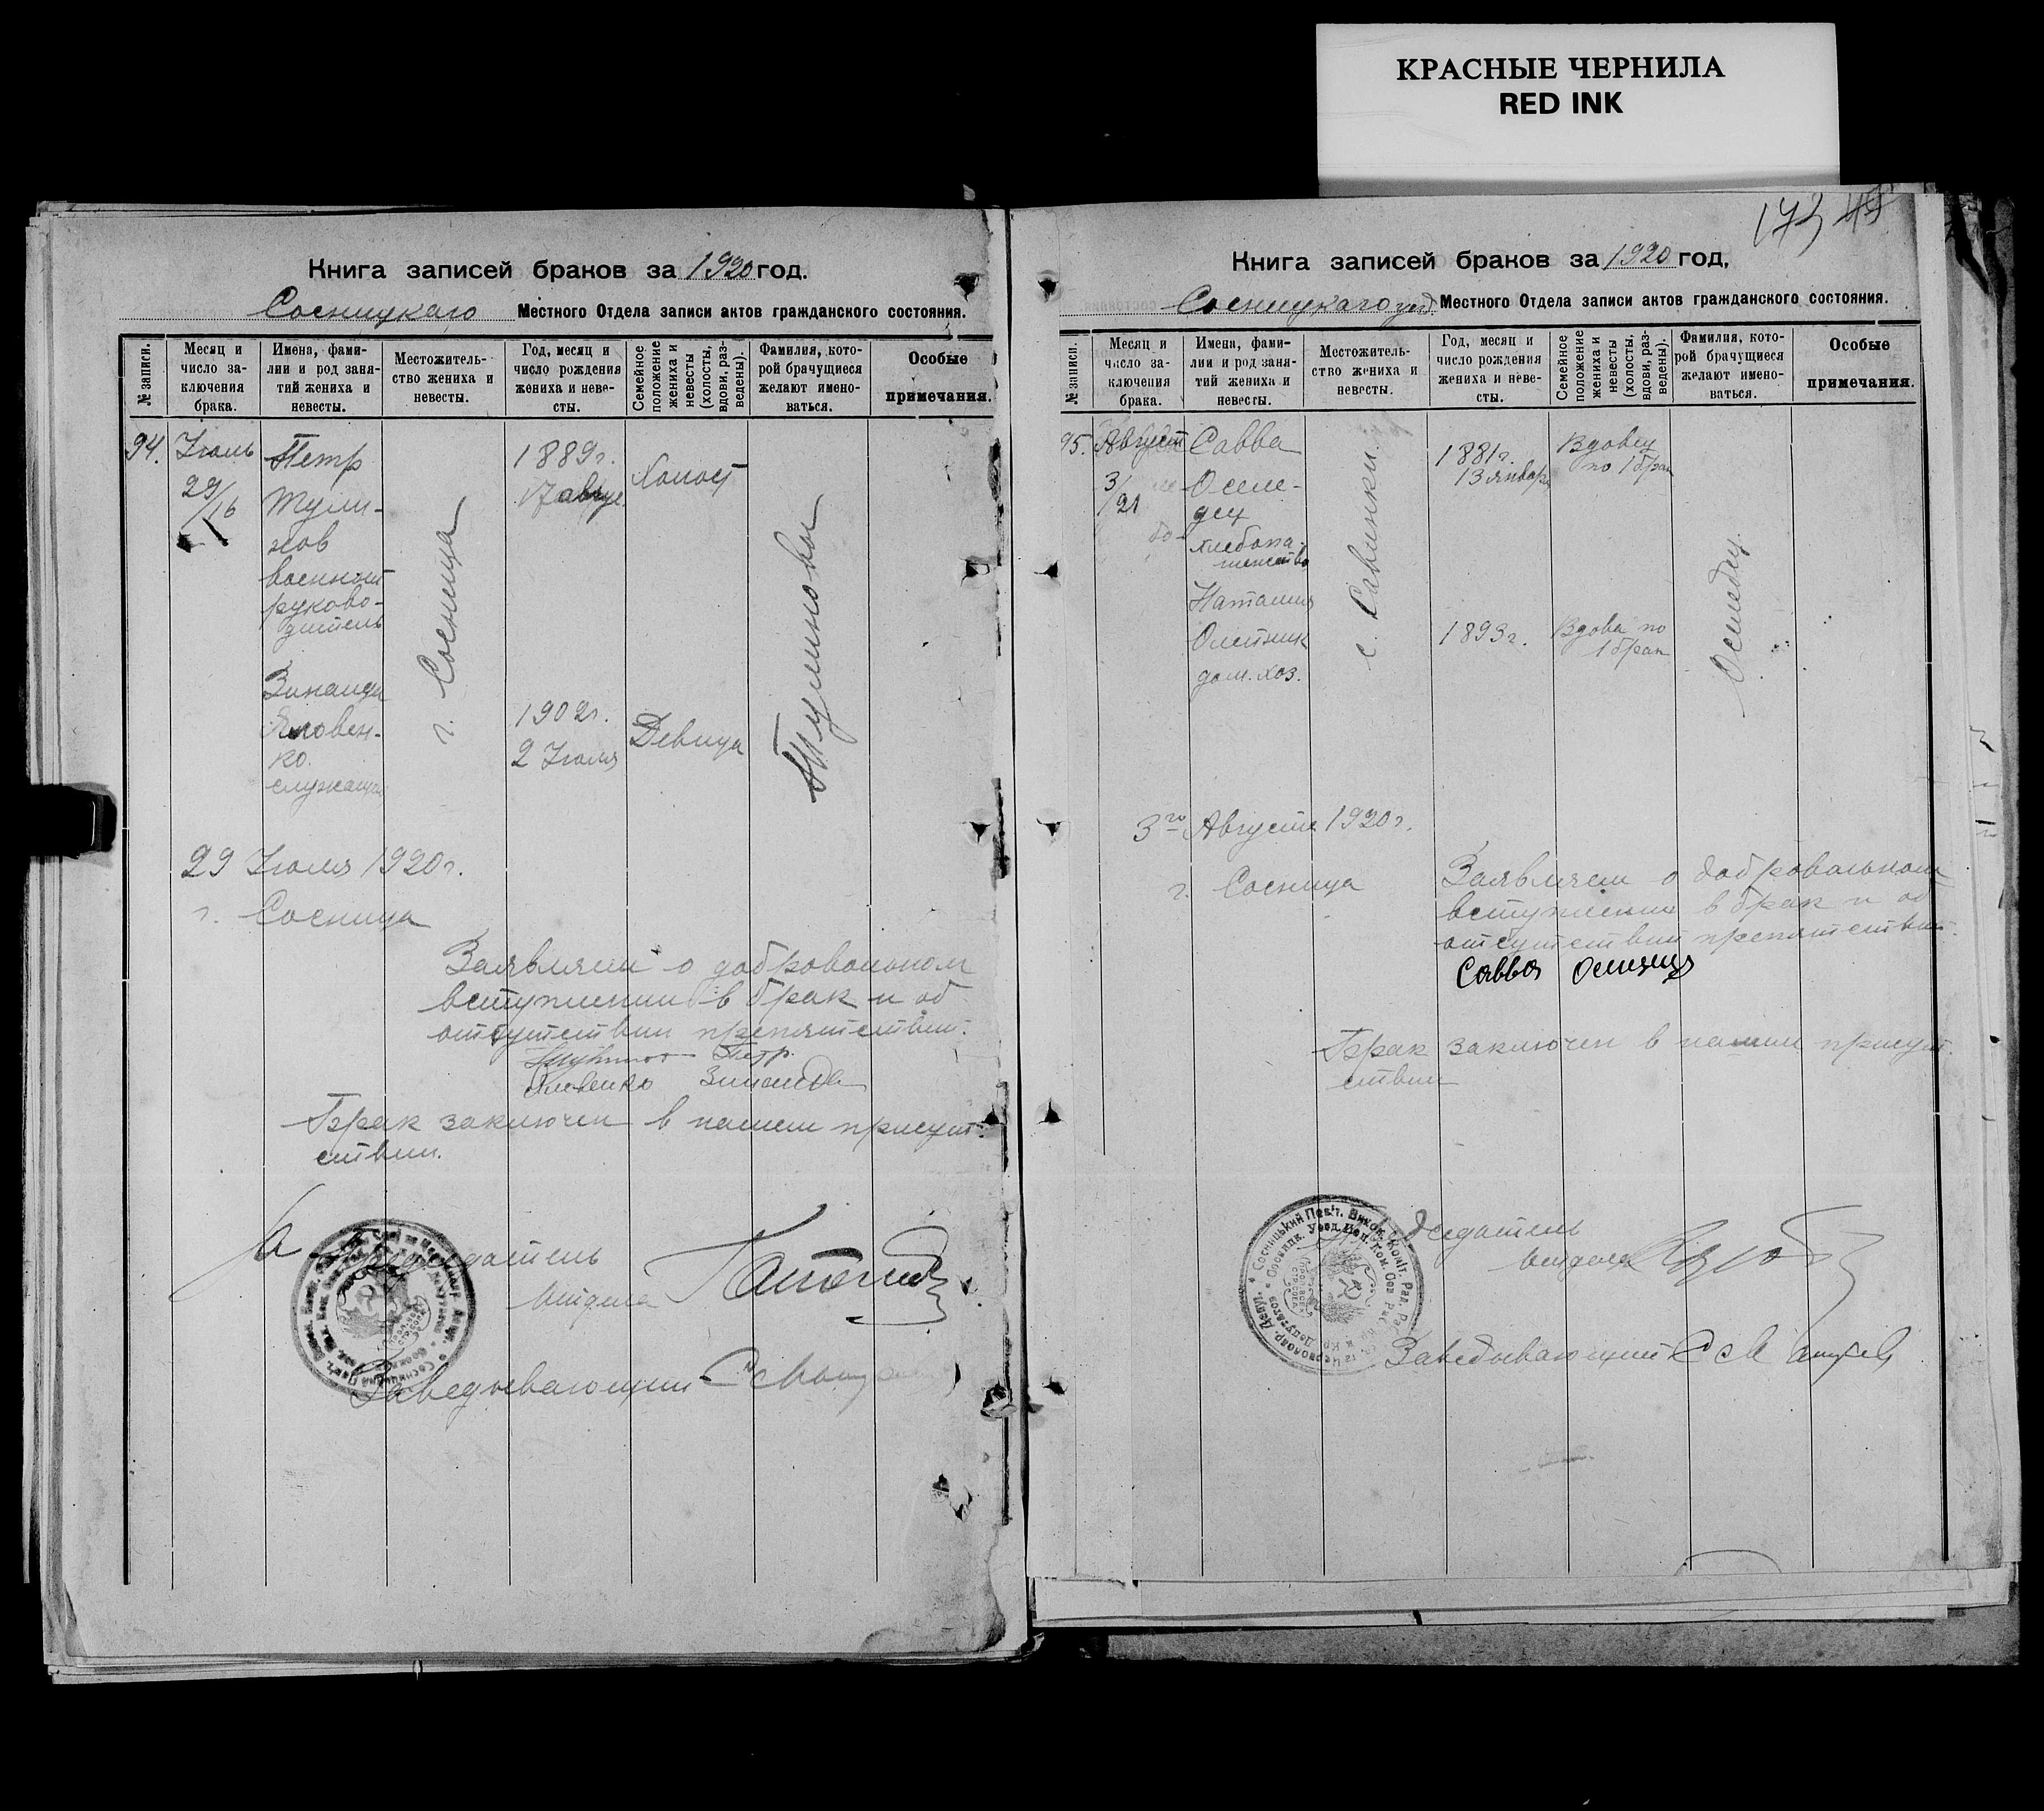 КРАСНЫЕ ЧЕРНИЛА
RED INK
Книга записей браков за 1920 год.
Сосницкаго Местного Отдела записи актов гражданского состояния.
№ записи.
Месяц и
число за-
ключения
брака.
Имена, фами-
лии и род заня-
тий жениха и
невесты.
Местожитель-
ство жениха и
невесты.
Год, месяц и
число рождения
жениха и неве-
сты.
Семейное
положение
жениха и
невесты
(холосты,
вдови, раз-
ведены).
Фамилия, кото-
рой брачущиеся
желают имено-
ваться.
Особые
примечания.
94.
Июль
29/16
Петр
военный
руково-
дитель
Зинаида
Яловен-
ко.
служащая
г. Сосница
1889г.
17 авгус.
1902г.
2 Июля
Холост
Девица
29 Июля 1920г.
г. Сосница
Заявляем о добровольном
вступлении в брак и об
отсутствии препятствий.
Петр.
Яловенко Зинаида
Брак заключен в нашем присут-
ствии.
Председатель
отдела
Заведывающий
173 49
Книга записей браков за 1920 год.
Сосницкаго уезд. Местного Отдела записи актов гражданского состояния.
№ записи.
Месяц и
число за-
ключения
брака.
Имена, фами-
лии и род заня-
тий жениха и
невесты.
Местожитель-
ство жениха и
невесты.
Год, месяц и
число рождения
жениха и неве-
сты.
Семейное
положение
жениха и
невесты
(холосты,
вдови, раз-
ведены).
Фамилия, кото-
рой брачущиеся
желают имено-
ваться.
Особые
примечания.
95.
Август
3/21
Савва
Оселе-
дец
хлебопа-
шество
Наталия
Олейник
дом. хоз.
с. Савинки.
1881г.
13 января
1893г.
Вдовец
по 1 брак
Вдова по
1 брак
Оселедец.
3го Августа 1920г.
г. Сосница
Заявляем о добровольном
вступлении в брак и об
отсутствии препятствий.
Савва
Брак заключен в нашем присут-
ствии
Председатель
отдела
Заведывающий